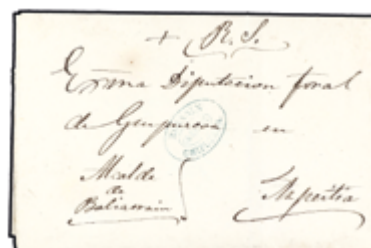 + R. S.
Exma Diputacion foral
de Guipuzcoa en
Alcalde
de
Baliarrain
Azpeitia